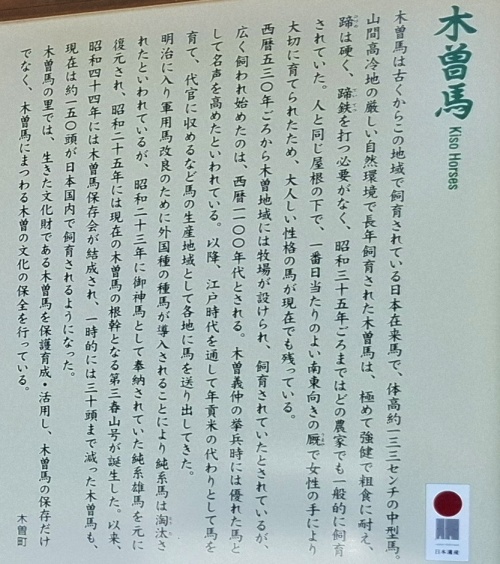 木曽馬 Kiso Horses
木曽馬は古くからこの地域で飼育されている日本在来馬で、体高約一三三センチの中型馬。
山間高冷地の厳しい自然環境で長年飼育された木曽馬は、極めて強健で粗食に耐え、
蹄は硬く、蹄鉄を打つ必要がなく、昭和三十五年ごろまではどの農家でも一般的に飼育
されていた。人と同じ屋根の下で、一番日当たりのよい南東向きの厩で女性の手により
大切に育てられたため、大人しい性格の馬が現在でも残っている。
西暦五三〇年ごろから木曽地域には牧場が設けられ、飼育されていたとされているが、
広く飼われ始めたのは、西暦一一〇〇年代とされる。木曽義仲の挙兵時には優れた馬と
して名声を高めたといわれている。以降、江戸時代を通して年貢米の代わりとして馬を
育て、代官に収めるなど馬の生産地域として各地に馬を送り出してきた。
明治に入り軍用馬改良のために外国種の種馬が導入されることにより純系馬は淘汰さ
れたといわれているが、昭和二十三年に御神馬として奉納されていた純系雄馬を元に
復元され、昭和二十五年には現在の木曽馬の根幹となる第三春山号が誕生した。以来、
昭和四十四年には木曽馬保存会が結成され、一時的には三十頭まで減った木曽馬も、
現在は約一五〇頭が日本国内で飼育されるようになった。
木曽馬の里では、生きた文化財である木曽馬を保護育成・活用し、木曽馬の保存だけ
でなく、木曽馬にまつわる木曽の文化の保全を行っている。
木曽町
日本遺産